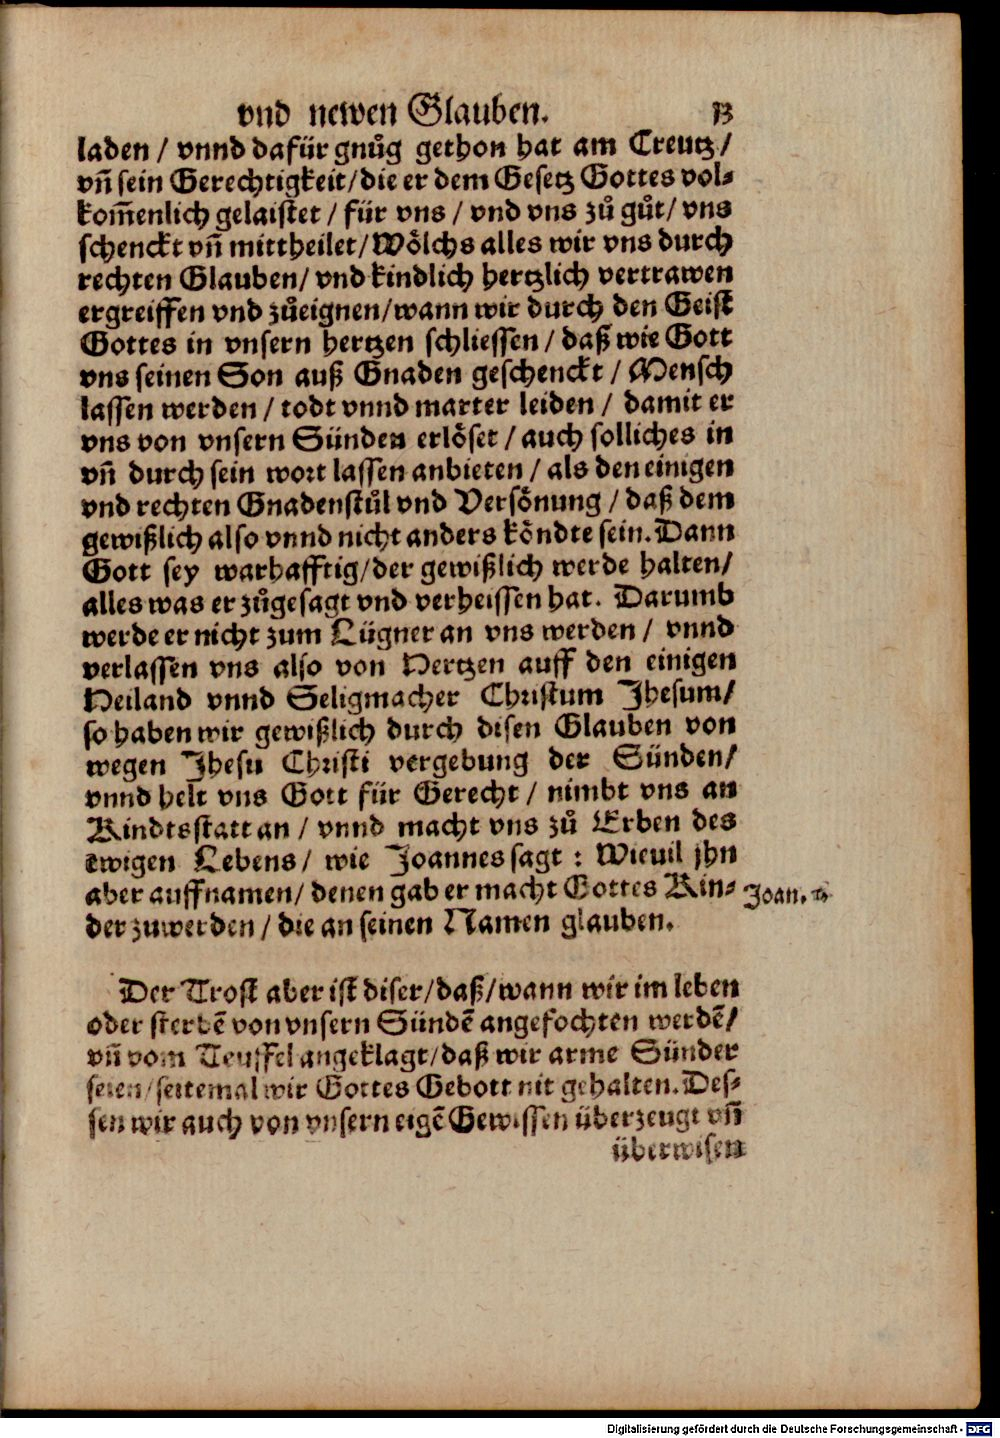 vnd newen Glauben. 13
laden / vnnd dafür gnůg gethon hat am Creutz /
vn̄ sein Gerechtigkeit / die er dem Gesetz Gottes vol⸗
kom̄enlich gelaistet / für vns / vnd vns zů gůt / vns
schenckt vn̄ mittheilet / Wölchs alles wir vns durch
rechten Glauben / vnd kindlich hertzlich vertrawen
ergreiffen vnd zůeignen / wann wir durch den Geist
Gottes in vnsern hertzen schliessen / daß wie Gott
vns seinen Son auß Gnaden geschenckt / Mensch
lassen werden / todt vnnd marter leiden / damit er
vns von vnsern Sünden erlöset / auch solliches in
vn̄ durch sein wort lassen anbieten / als den einigen
vnd rechten Gnadenstůl vnd Versönung / daß dem
gewißlich also vnnd nicht anders köndte sein. Dann
Gott sey warhafftig / der gewißlich werde halten /
alles was er zůgesagt vnd verheissen hat. Darumb
werde er nicht zum Lügner an vns werden / vnnd
verlassen vns also von Hertzen auff den einigen
Heiland vnnd Seligmacher Christum Jhesum /
so haben wir gewißlich durch disen Glauben von
wegen Jhesu Christi vergebung der Sünden /
vnnd helt vns Gott für Gerecht / nimbt vns an
Kindtsstatt an / vnnd macht vns zů Erben des
ewigen Lebens / wie Joannes sagt : Wieuil jhn
aber auffnamen / denen gab er macht Gottes Kin⸗
Joan.
der zuwerden / die an seinen Namen glauben.
Der Trost aber ist diser / daß / wann wir im leben
oder sterbē von vnsern Sündē angefochten werdē /
vn̄ vom Teuffel angeklagt / daß wir arme Sünder
seien / seitemal wir Gottes Gebott nit gehalten. Des⸗
sen wir auch von vnsern eigē Gewissen überzeugt vn̄
überwisen
Digitalisierung gefördert durch die Deutsche Forschungsgemeinschaft - DFG